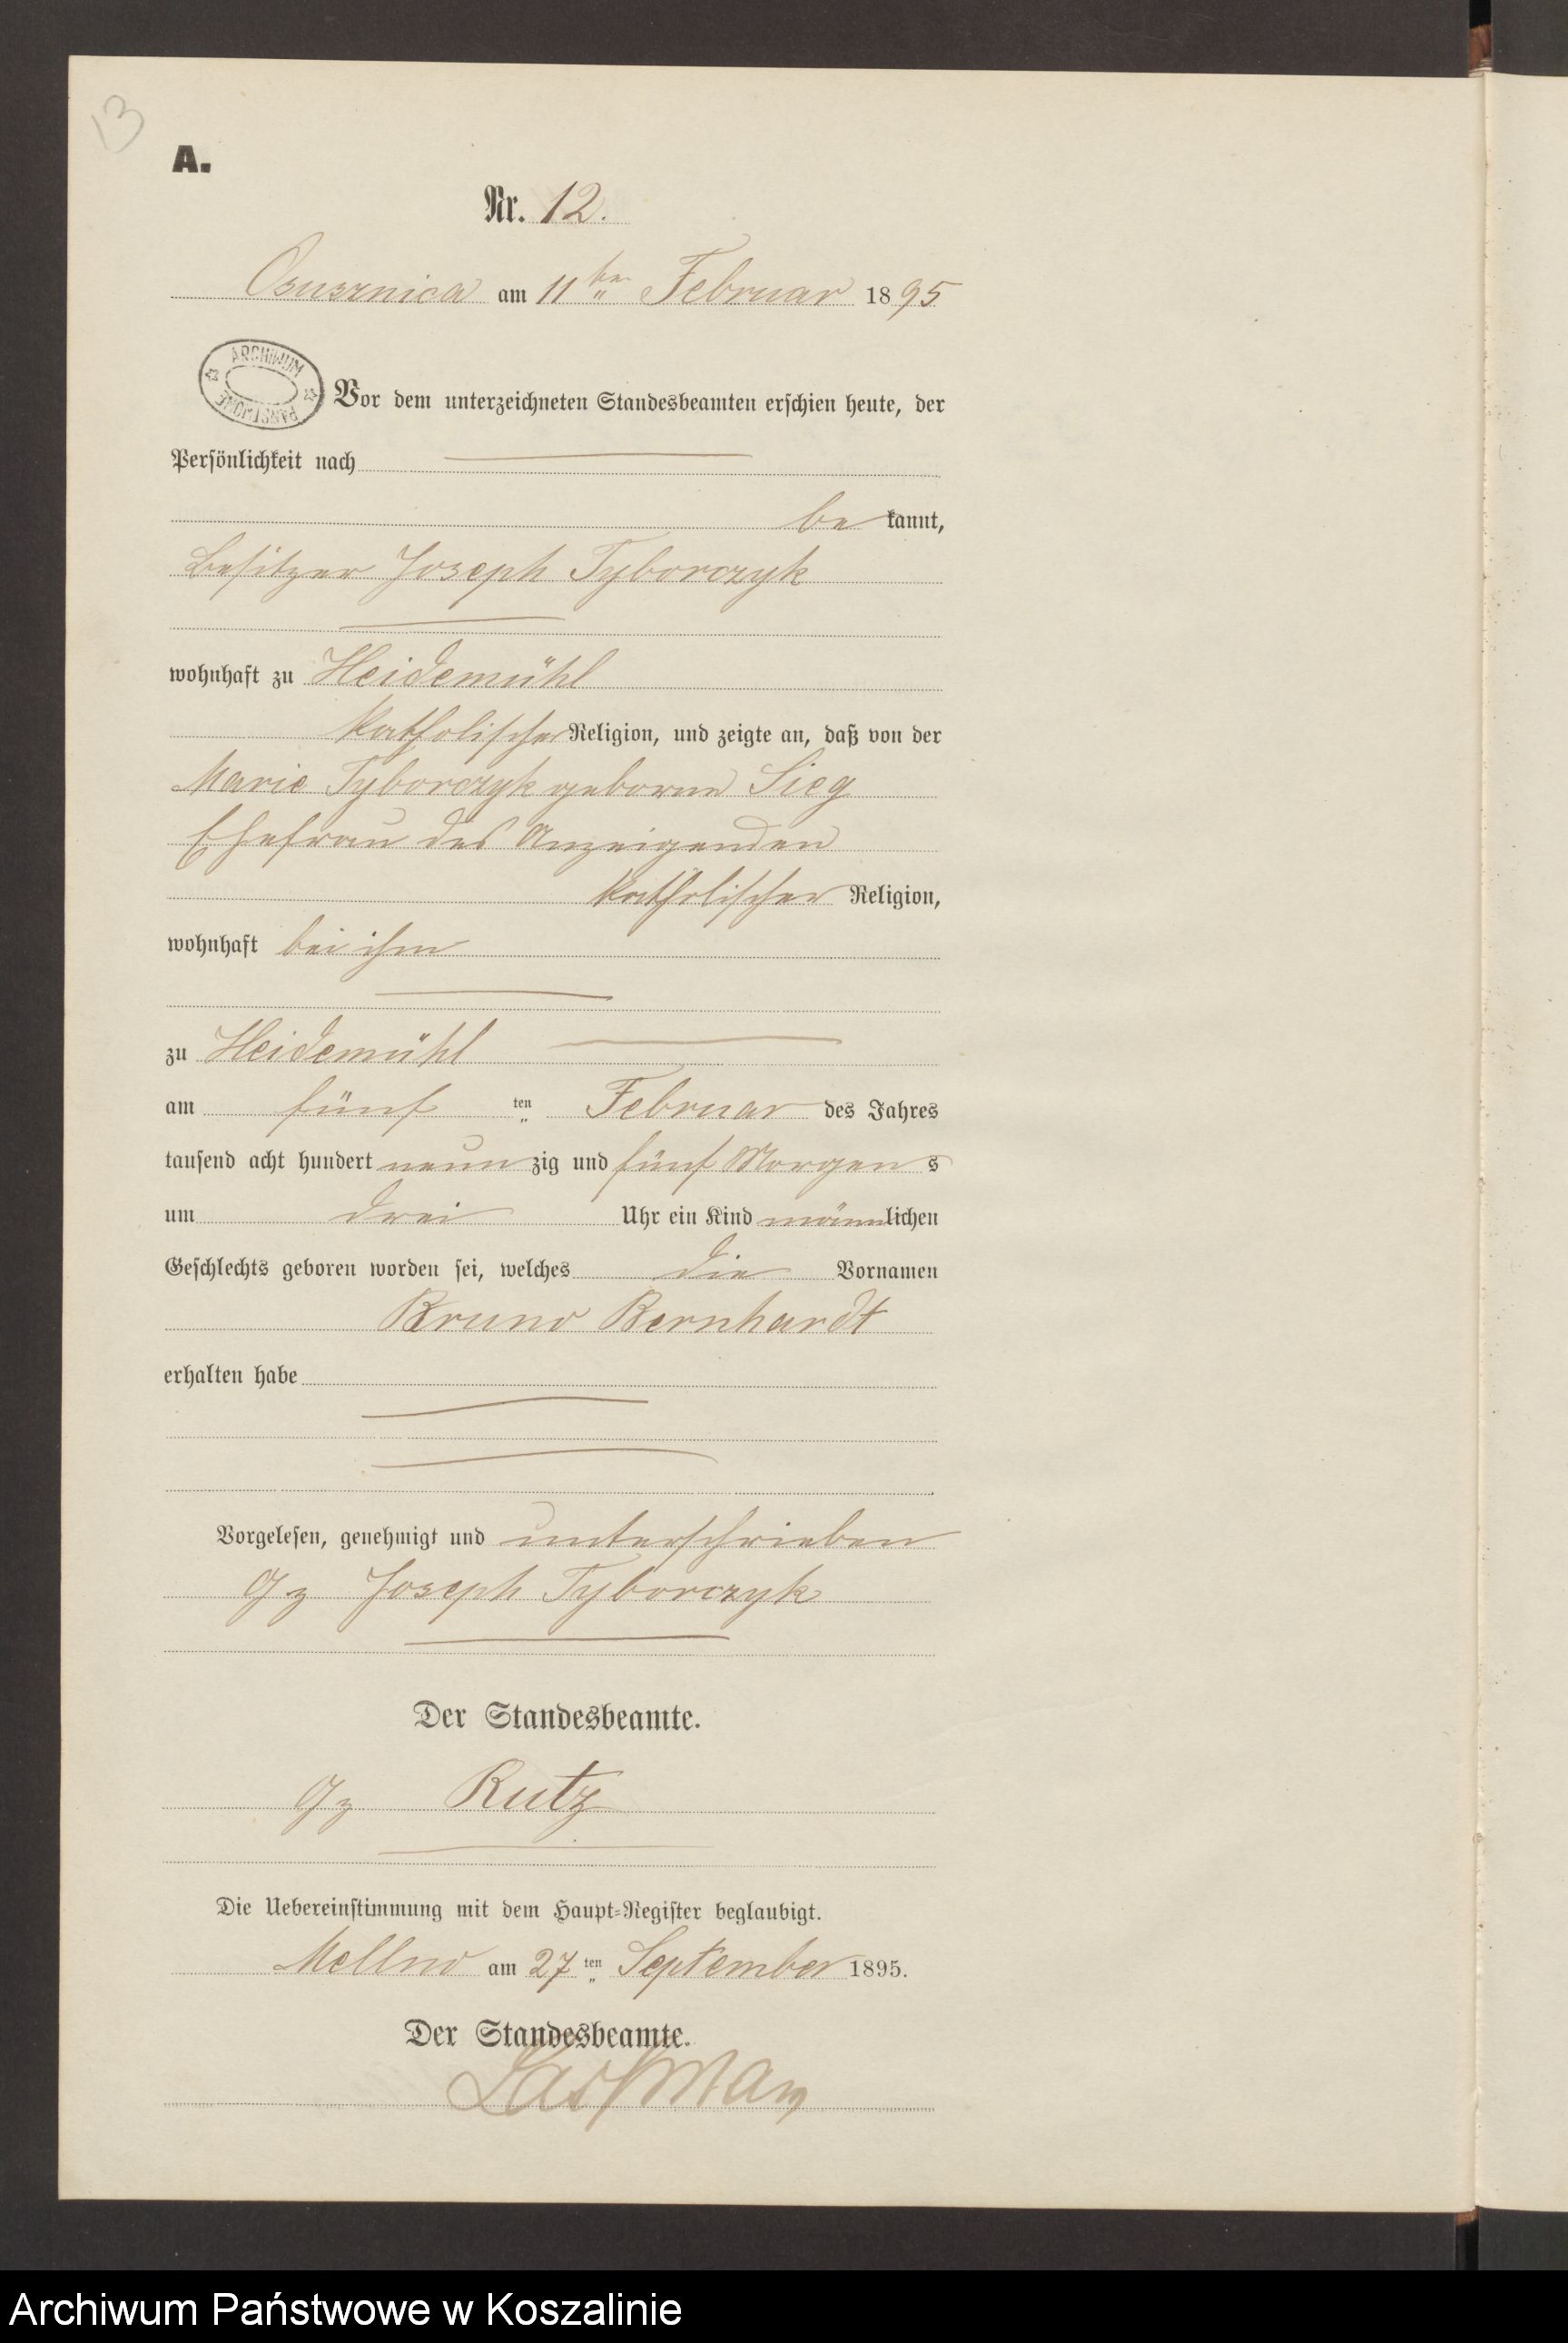 13
A.
Nr. 12.
Osusznica am 11ten Februar 1895
ARCHIWUM PAŃSTWOWE
Vor dem unterzeichneten Standesbeamten erschien heute, der
Persönlichkeit nach
be kannt,
Besitzer Joseph Tyborczyk
wohnhaft zu Heidemühl
katholischer Religion, und zeigte an, daß von der
Marie Tyborczyk geborne Sieg
Ehefrau des Anzeigenden
katholischer Religion,
wohnhaft bei ihm
zu Heidemühl
am fünf ten Februar des Jahres
tausend acht hundert neun zig und fünf Morgen s
um drei Uhr ein Kind männlichen
Geschlechts geboren worden sei, welches die Vornamen
Bruno Bernhardt
erhalten habe
Vorgelesen, genehmigt und unterschrieben
gz Joseph Tyborczyk
Der Standesbeamte.
gz Rutz
Die Uebereinstimmung mit dem Haupt-Register beglaubigt.
Mellno am 27 ten September 1895.
Der Standesbeamte.
Archiwum Państwowe w Koszalinie